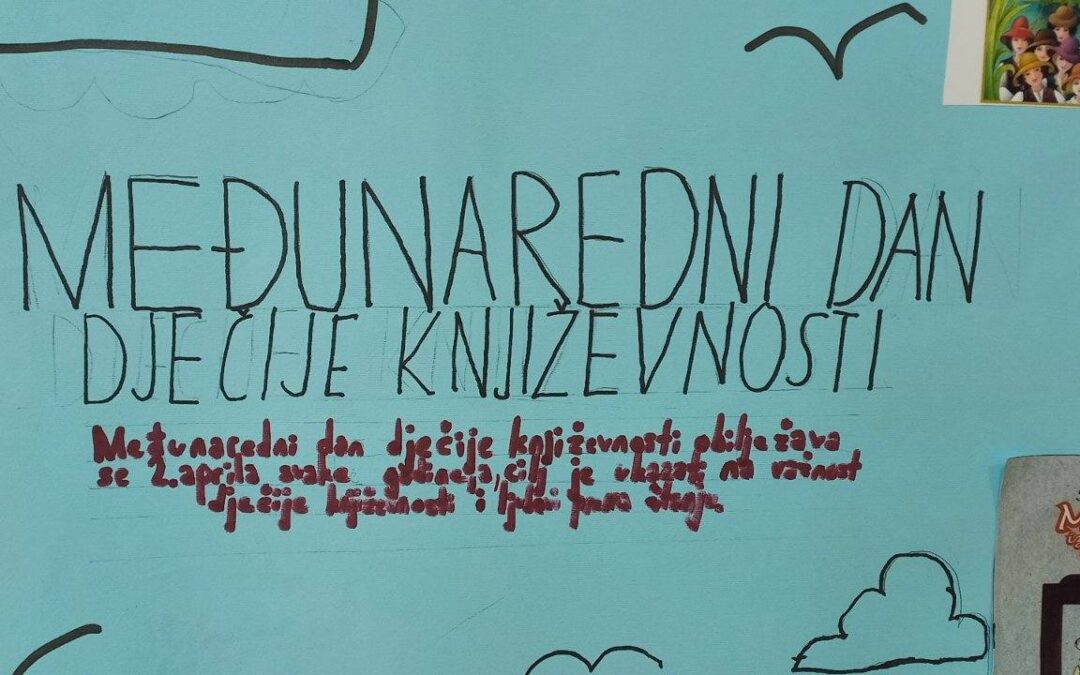 MEĐUNAREDNI DAN
DJEČIJE KNJIŽEVNOSTI
Međunaredni dan dječije književnosti obilježava
se 2. aprila svake godine, cilj je ukazati na važnost
dječije književnosti i ljubavi prema